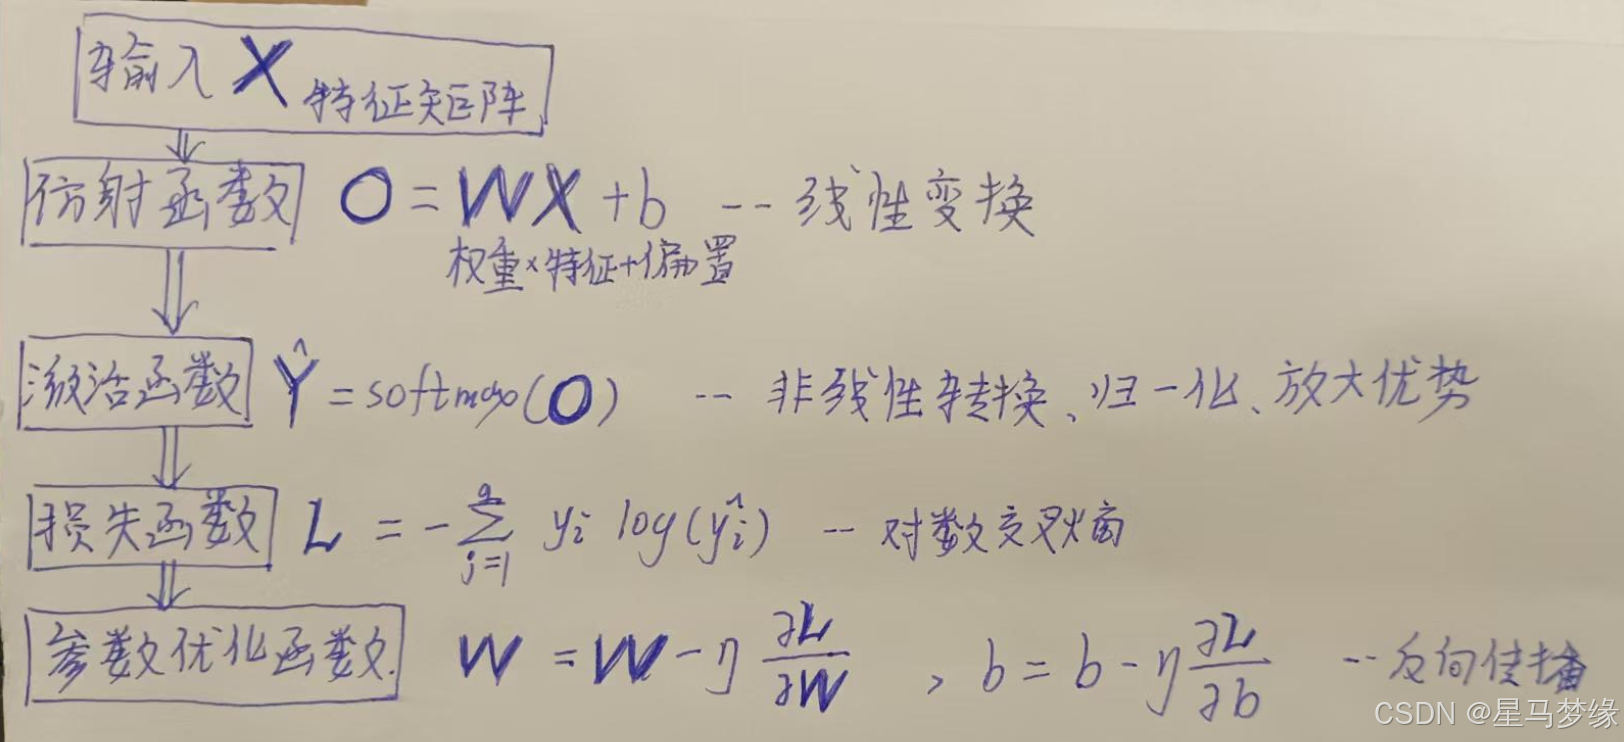 输入 X 特征矩阵
仿射函数 O = WX + b -- 线性变换
权重×特征+偏置
激活函数 Ŷ = softmax(O) -- 非线性转换、归一化、放大优势
损失函数 L = -∑_{j=1}^{q} y_i log(ŷ_i) -- 对数交叉熵
参数优化函数 W = W - η ∂L/∂W , b = b - η ∂L/∂b -- 反向传播
CSDN @星马梦缘